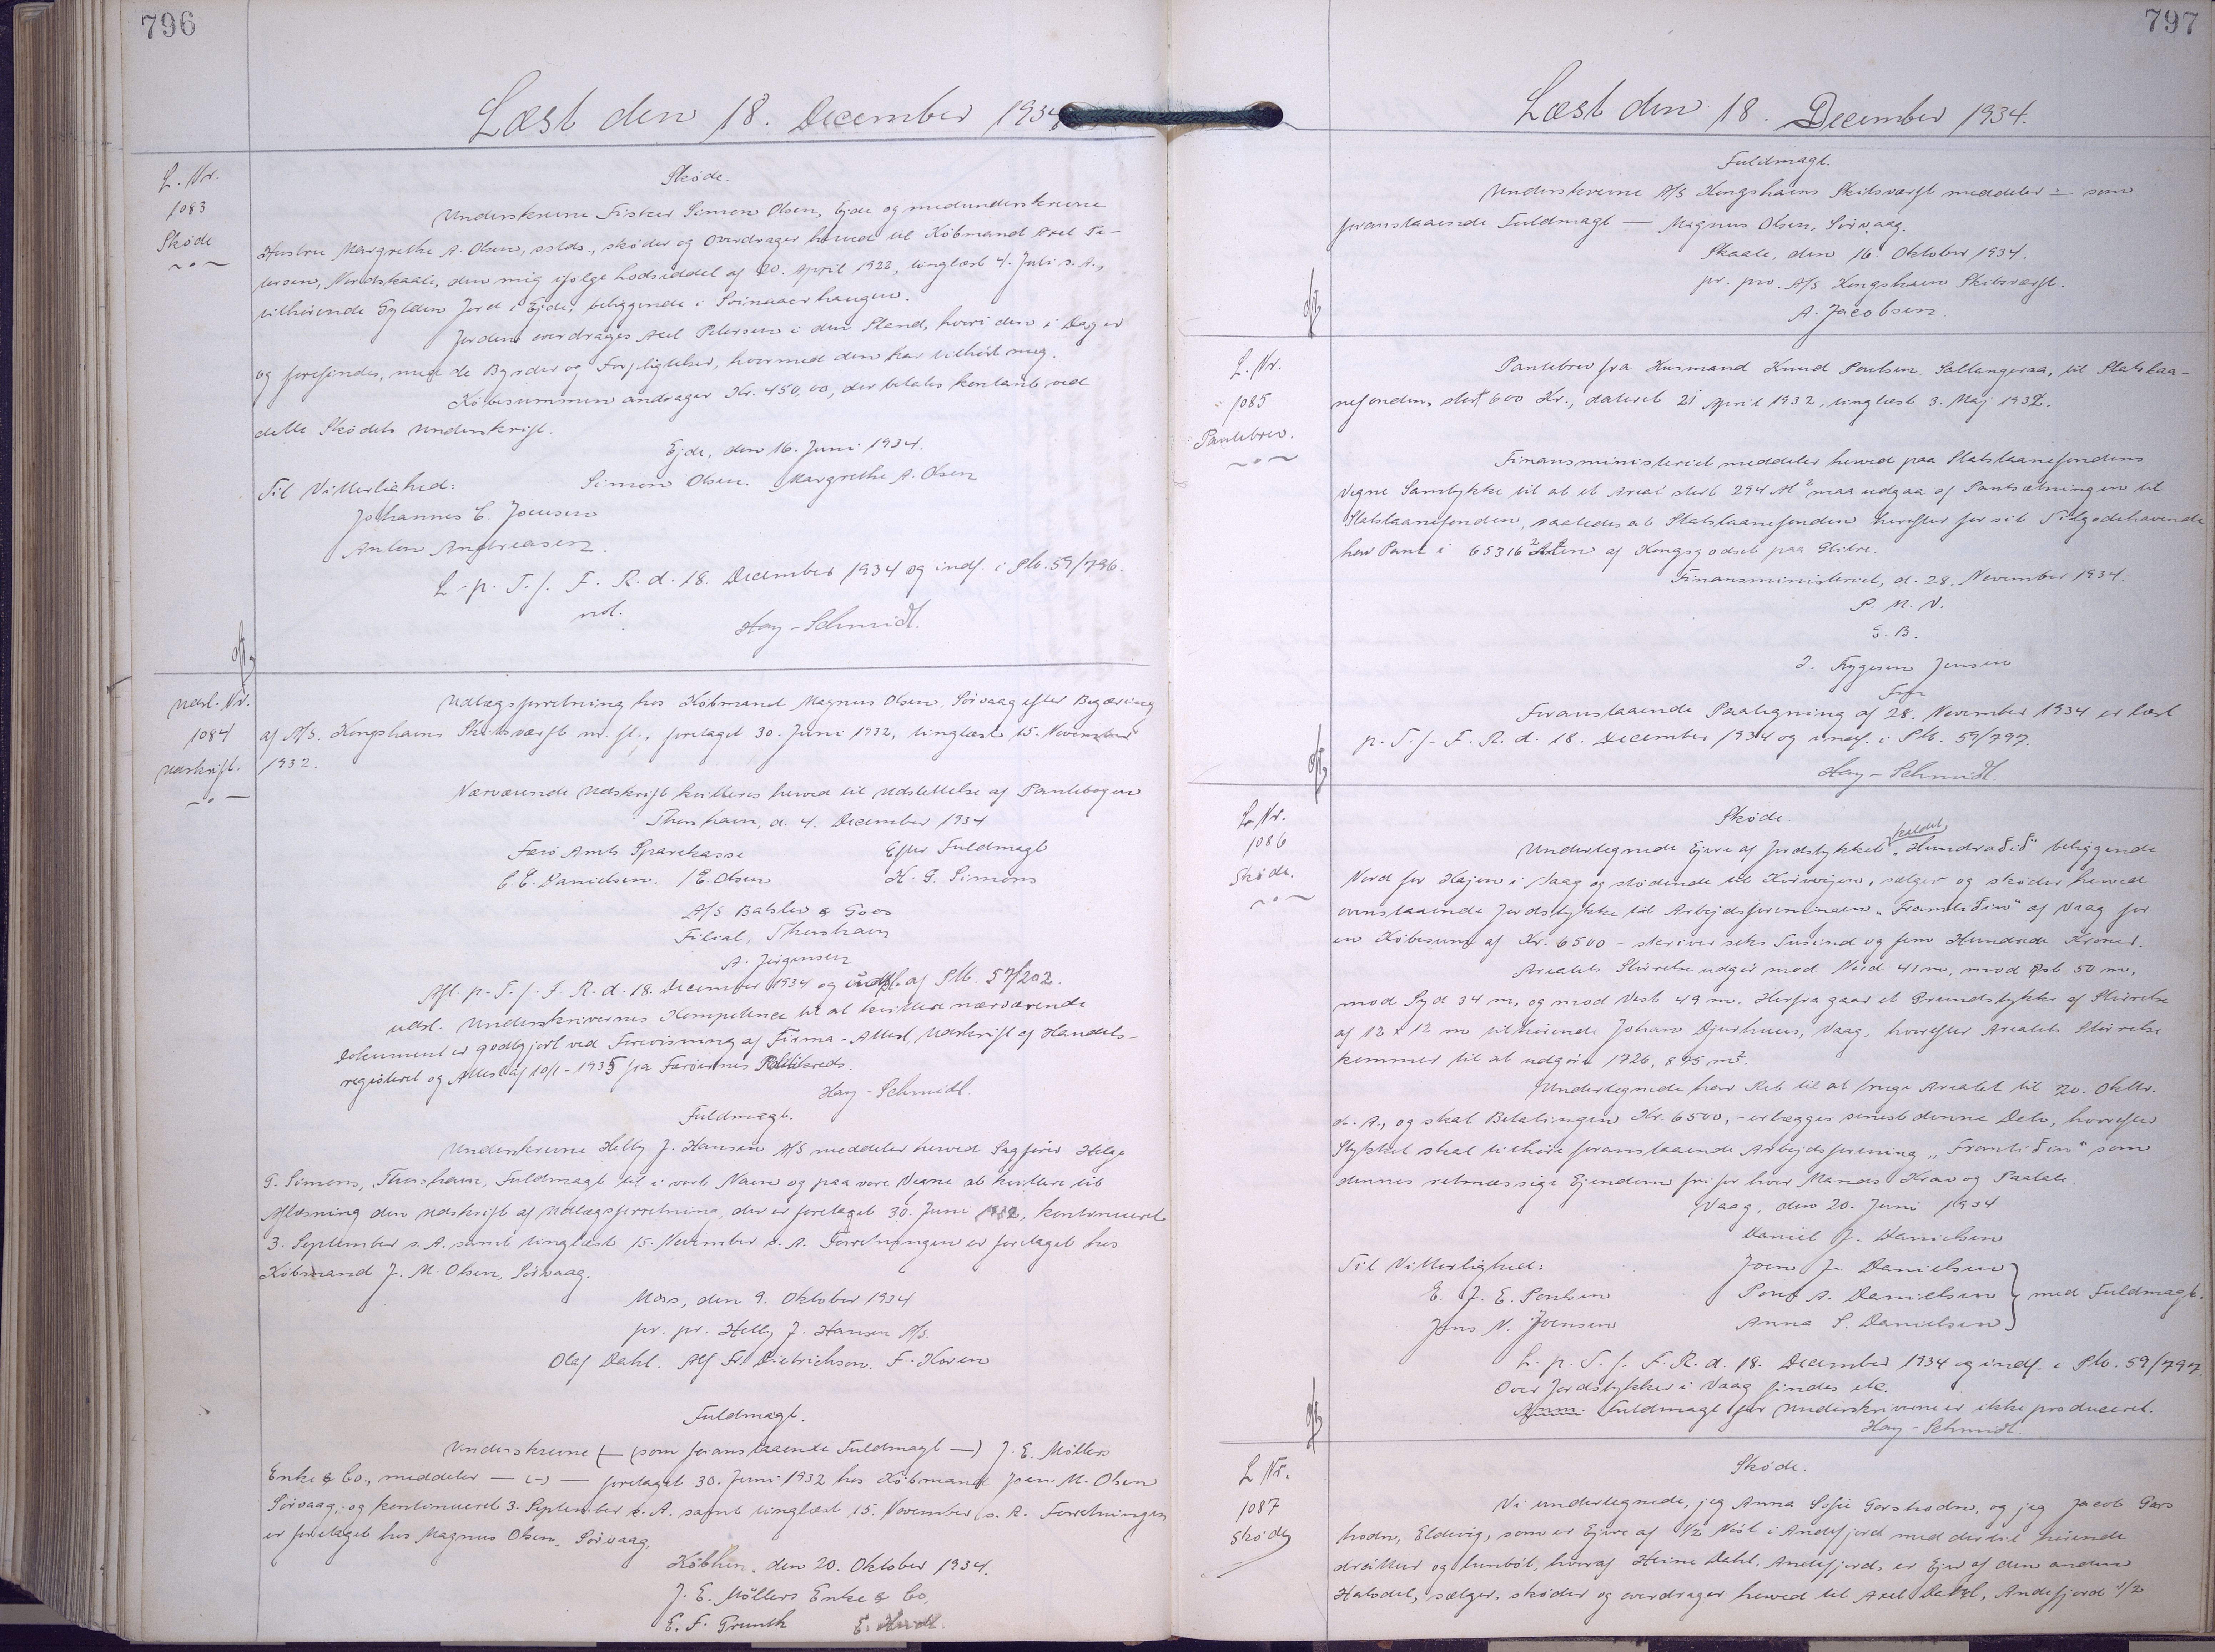 796
Læst den 18. December 1934
L. Nr.
1083
Skøde
Skøde.
Underskrevne Fisker Simon Olsen, Ejde og medunderskrevne
Hustru Margrethe A. Olsen, sstds., skøder og overdrager herved til Købmand Axel Pe-
tersen, Nordskaale, den mig ifølge Lodseddel af 20. April 1922, tinglæst 4. Juli s. A.,
tilhørende Gylden Jord i Ejde, beliggende i
Jorden overdrages Axel Petersen i den Stand, hvori den i Dag er
og forefindes, med de Byrder og Forpligtelser, hvormed den har tilhørt mig.
Købesummen andrager Kr. 450,00, der betales kontant ved
dette Skødets Underskrift.
Ejde, den 16. Juni 1934.
Til Vitterlighed: Simon Olsen. Margrethe A. Olsen
Johannes C. Joensen
Anton Andreasen.
L. p. T. f. F. R. d. 18. December 1934 og indf. i Pb. 59/796.
Hay-Schmidt.
Udsl. Nr.
1084
Udskrift.
Udlægsforretning hos Købmand Magnus Olsen, Sörvaag efter Begæring
af A/S. Kongshavns Skibsværft m. fl., foretaget 30. Juni 1932, tinglæst 15. November
1932.
Nærværende Udskrift kvitteres herved til Udslettelse af Pantebogen
Thorshavn, d. 4. December 1934
Færø Amts Sparekasse Efter Fuldmagt
C. C. Danielsen. / E. Olsen H. G. Simons
A/S Balslev & Goos
Filial, Thorshavn
A. Jørgensen
Afl. p. T. f. F. R. d. 18. December 1934 og udsl. af Pb. 57/202.
udsl. Underskrivernes Kompetence til at kvittere nærværende
Dokument er godtgjort ved Forevisning af Firma-Attest, Udskrift af Handels-
registeret og Attest af 10/1-1935 fra Færøernes Politikreds.
Hay-Schmidt.
Fuldmagt.
Underskrevne Helly J. Hansen A/S meddeler herved Sagfører Helge
G. Simons, Thorshavn, Fuldmagt til i vort Navn og paa vore Vegne at kvittere til
Aflæsning den Udskrift af Udlægsforretning, der er foretaget 30. Juni 1932, kontinueret
3. September s. A. samt tinglæst 15. November s. A. Forretningen er foretaget hos
Købmand J. M. Olsen, Sörvaag.
Moss, den 9. Oktober 1934
pr. pr. Helly J. Hansen A/S.
Olaf Dahl. Alf Fr. Dietrichson. F. Koren
Fuldmagt.
Underskrevne (— (som foranstaaende Fuldmagt —) J. E. Møllers
Enke & Co., meddeler — (-) — foretaget 30. Juni 1932 hos Købmand Joan M. Olsen
Sörvaag, og kontinueret 3. September s. A. samt tinglæst 15. November s. A. Forretningen
er foretaget hos Magnus Olsen, Sörvaag.
Köbhvn. den 20. Oktober 1934.
J. E. Møllers Enke & Co.
E. F. Grunth
797
Læst den 18. December 1934.
Fuldmagt.
Underskrevne A/S Kongshavns Skibsværft meddeler — som
foranstaaende Fuldmagt — Magnus Olsen, Sörvaag.
Skaale, den 16. Oktober 1934.
pr. pro. A/S Kongshavn Skibsværft.
A. Jacobsen.
L. Nr.
1085
Pantebrev.
Pantebrev fra Husmand Knud Poulsen, Saltangeraa, til Statslaa-
nefonden, stort 600 Kr., dateret 21 April 1932, tinglæst 3. Maj 1932.
Finansministeriet meddeler herved paa Statslaanefondens
Vegne Samtykke til at et Areal stort 294 M² maa udgaa af Pantsætningen til
Statslaanefonden, saaledes at Statslaanefonden herefter for sit Tilgodehavende
har Pant i 65316 af Kongsgodset paa Glibre.
Finansministeriet, d. 28. November 1934.
P. M. V.
E. B.
J. Trygesen Jensen
Foranstaaende Paategning af 28. November 1934 er læst
p. T. f. F. R. d. 18. December 1934 og indf. i Pb. 59/797.
Hay-Schmidt.
L. Nr.
1086
Skøde.
Skøde.
kaldet
Undertegnede Ejere af Jordstykket „Hundraðið" beliggende
Nord for Højen i Vaag og stødende til Kirkevejen, sælger og skøder herved
ovenstaaende Jordstykke til Arbejdsforeningen „Framtiðin" af Vaag for
en Købesum af Kr. 6500 - skriver seks Tusind og fem Hundrede Kroner.
Arealets Størrelse udgør mod Nord 41 m, mod Øst 50 m,
mod Syd 34 m, og mod Vest 49 m. Herfra gaar et Grundstykke af Størrelse
af 12 x 12 m tilhørende Johan Djurhuus, Vaag, hvorefter Arealets Størrelse
kommer til at udgøre 1726, 875 m².
Undertegnede har Ret til at bruge Arealet til 20. Oktbr.
d. A., og skal Betalingen Kr. 6500,- erlægges senest denne Dato, hvorefter
Stykket skal tilhøre foranstaaende Arbejdsforening „Framtiðin" som
dennes retmæssige Ejendom fri for hver Mands Krav og Paatale.
Vaag, den 20. Juni 1934
Daniel J. Danielsen
Til Vitterlighed: Joen J. Danielsen
E. J. E. Poulsen Poul A. Danielsen } med Fuldmagt.
Jens N. Joensen Anna S. Danielsen
L. p. T. f. F. R. d. 18. December 1934 og indf. i Pb. 59/797.
Over Jordstykker i Vaag findes etc.
Anm. Fuldmagt for Underskriverne er ikke produceret.
Hay-Schmidt.
L Nr.
1087
Skøde
Skøde.
Vi undertegnede, jeg Anna Sofie Garshodn, og jeg Jacob Gars
hodn, Eldevig, som er Ejere af 1/2 Nöst i Andefjord med dertil hørende
dráttur og lunbót, hvoraf Heine Dahl, Andefjord, er Ejer af den anden
Halvdel, sælger, skøder og overdrager herved til Axel Dahl, Andefjord 1/2